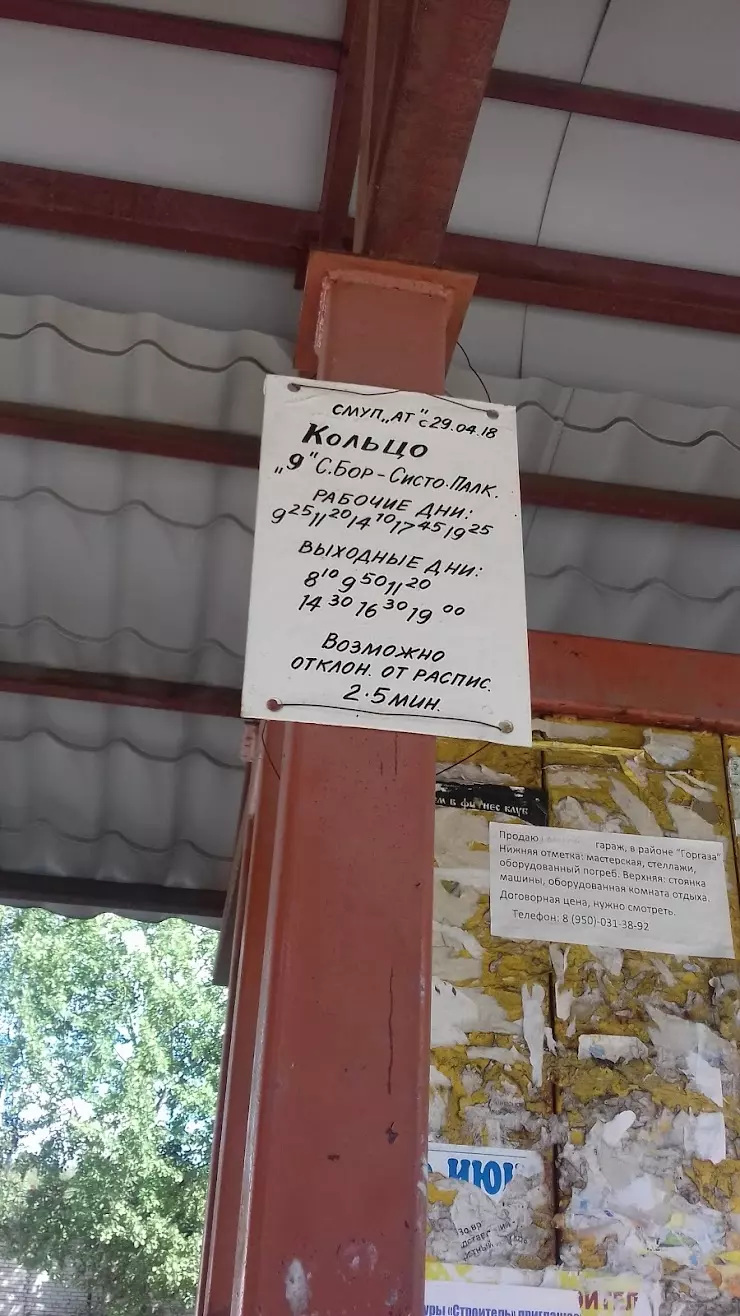 СМУП „АТ" с 29.04.18
Кольцо
„9" С.БОР-СИСТО-ПАЛК.
РАБОЧИЕ ДНИ:
9²⁵ 11²⁰ 14¹⁰ 17⁴⁵ 19²⁵
ВЫХОДНЫЕ ДНИ:
8¹⁰ 9⁵⁰ 11²⁰
14³⁰ 16³⁰ 19⁰⁰
Возможно
отклон. от распис.
2-5 мин.
в фитнес клуб
Продаю гараж, в районе "Горгаза"
Нижняя отметка: мастерская, стеллажи,
оборудованный погреб. Верхняя: стоянка
машины, оборудованная комната отдыха.
Договорная цена, нужно смотреть.
Телефон: 8 (950)-031-38-92
«Строитель»